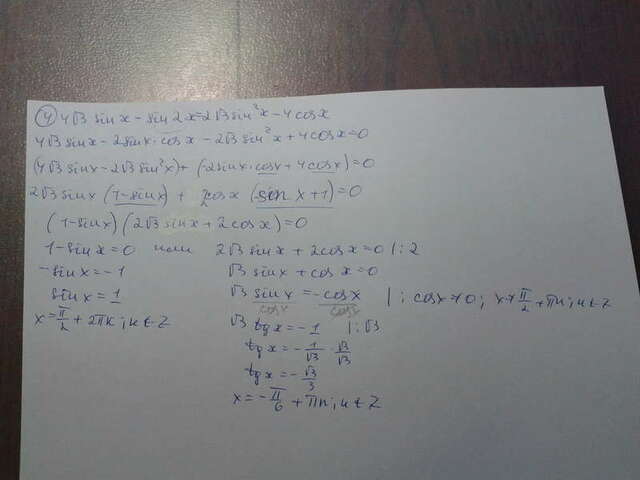 ④ 4√3 sin x - sin 2x = 2√3 sin²x - 4cosx
4√3 sinx - 2sinx·cosx - 2√3 sin²x + 4cosx = 0
(4√3 sinx - 2√3 sin²x) + (-2sinx·cosx + 4cosx) = 0
2√3 sinx (1-sinx) + 2cosx (-sinx+1) = 0
(1-sinx)(2√3 sinx + 2cosx) = 0
1-sin x = 0 или 2√3 sinx + 2cosx = 0 |:2
-sin x = -1 √3 sinx + cosx = 0
sinx = 1 √3 sinx/cosx = -cosx/cosx |: cosx ≠ 0; x ≠ π/2 + πn; n ∈ Z
x = π/2 + 2πk; k ∈ Z √3 tgx = -1 |:√3
tgx = -1/√3 · √3/√3
tgx = -√3/3
x = -π/6 + πn; n ∈ Z